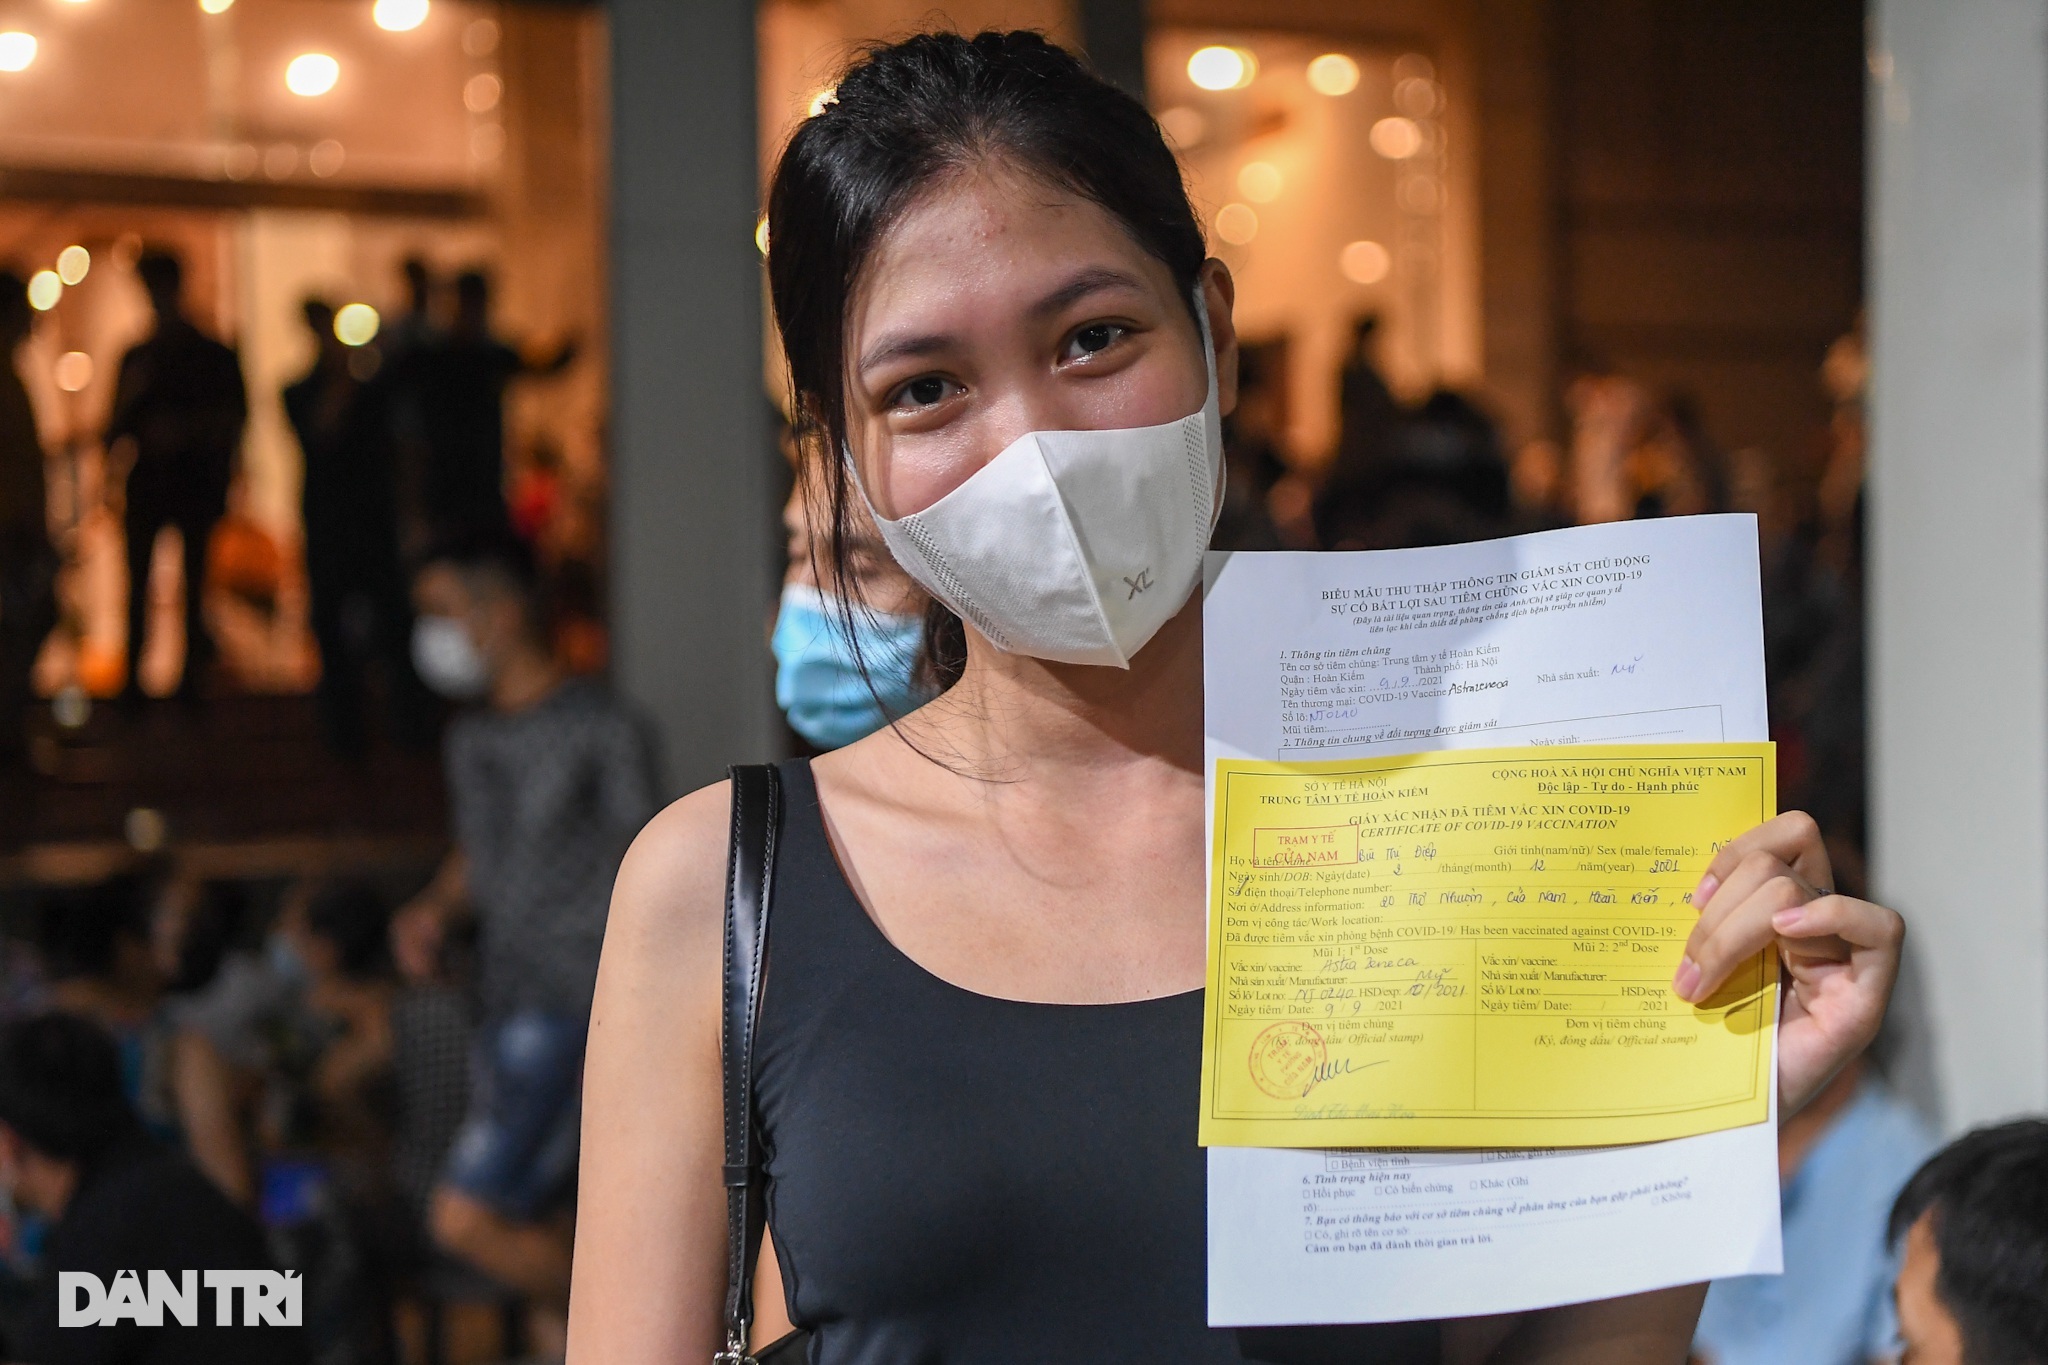 XL
BIỂU MẪU THU THẬP THÔNG TIN GIÁM SÁT CHỦ ĐỘNG
SỰ CỐ BẤT LỢI SAU TIÊM CHỦNG VẮC XIN COVID-19
(Đây là tài liệu quan trọng, thông tin của Anh/Chị sẽ giúp cơ quan y tế
liên lạc khi cần thiết để phòng chống dịch bệnh truyền nhiễm)
1. Thông tin tiêm chủng
Tên cơ sở tiêm chủng: Trung tâm y tế Hoàn Kiếm
Quận : Hoàn Kiếm Thành phố: Hà Nội
Ngày tiêm vắc xin: 9/9/2021 Nhà sản xuất: Mỹ
Tên thương mại: COVID-19 Vaccine Astrazeneca
Số lô:
Mũi tiêm:
2. Thông tin chung về đối tượng được giám sát
Ngày sinh:
SỞ Y TẾ HÀ NỘI
TRUNG TÂM Y TẾ HOÀN KIẾM
CỘNG HOÀ XÃ HỘI CHỦ NGHĨA VIỆT NAM
Độc lập - Tự do - Hạnh phúc
GIẤY XÁC NHẬN ĐÃ TIÊM VẮC XIN COVID-19
CERTIFICATE OF COVID-19 VACCINATION
TRẠM Y TẾ
CỬA NAM
Họ và tên/Name: Bùi Thị Điệp Giới tính(nam/nữ)/ Sex (male/female): Nữ
Ngày sinh/DOB: Ngày(date) 2 /tháng(month) 12 /năm(year) 2001
Số điện thoại/Telephone number:
Nơi ở/Address information: 20 Thợ Nhuộm, Cửa Nam, Hoàn Kiếm, H
Đơn vị công tác/Work location:
Đã được tiêm vắc xin phòng bệnh COVID-19/ Has been vaccinated against COVID-19:
Mũi 1: 1st Dose
Vắc xin/ vaccine: Astra Zeneca
Nhà sản xuất/ Manufacturer: Mỹ
Số lô/ Lot no: NJ0240 HSD/exp: 10/2021
Ngày tiêm/ Date: 9/9/2021
Đơn vị tiêm chủng
(Ký, đóng dấu/ Official stamp)
TRẠM Y TẾ PHƯỜNG CỬA NAM
Mũi 2: 2nd Dose
Vắc xin/ vaccine:
Nhà sản xuất/ Manufacturer:
Số lô/ Lot no: HSD/exp:
Ngày tiêm/ Date: / /2021
Đơn vị tiêm chủng
(Ký, đóng dấu/ Official stamp)
□ Bệnh viện huyện
□ Bệnh viện tỉnh □ Khác, ghi rõ
6. Tình trạng hiện nay
□ Hồi phục □ Có biến chứng □ Khác (Ghi
rõ):
7. Bạn có thông báo với cơ sở tiêm chủng về phản ứng của bạn gặp phải không?
□ Có, ghi rõ tên cơ sở: □ Không
Cảm ơn bạn đã dành thời gian trả lời.
DÂN TRÍ